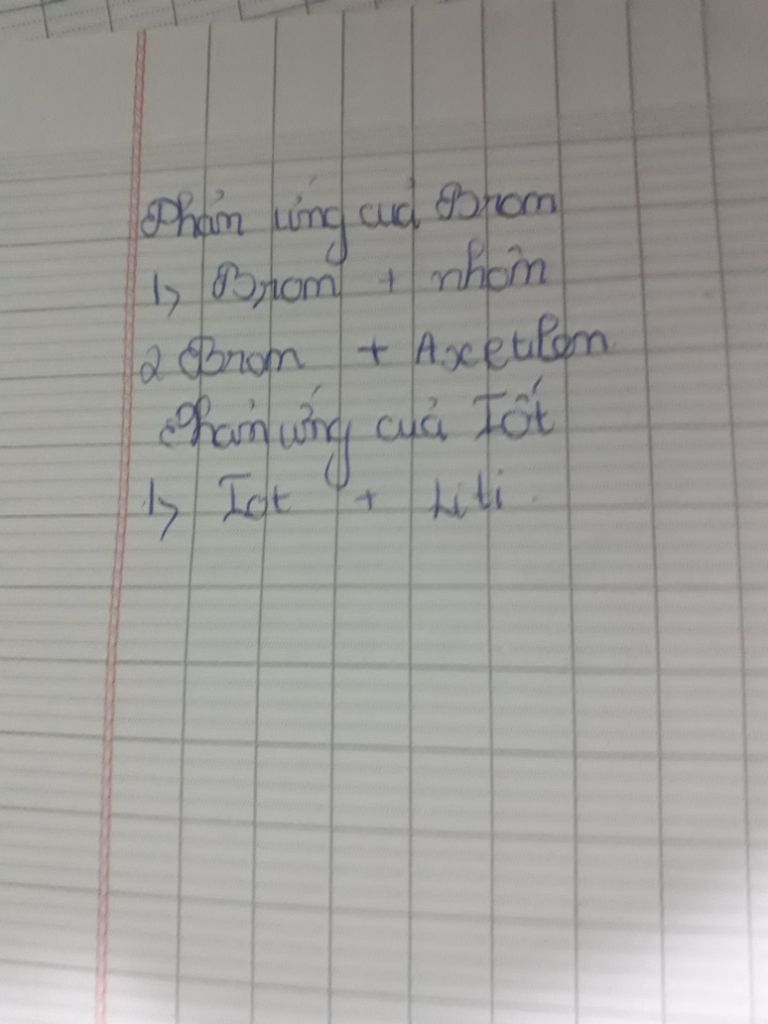 Phản ứng của Brom
1> Brom + nhôm
2 Brom + Axetilen
Phản ứng của Iốt
1> Iot + Liti